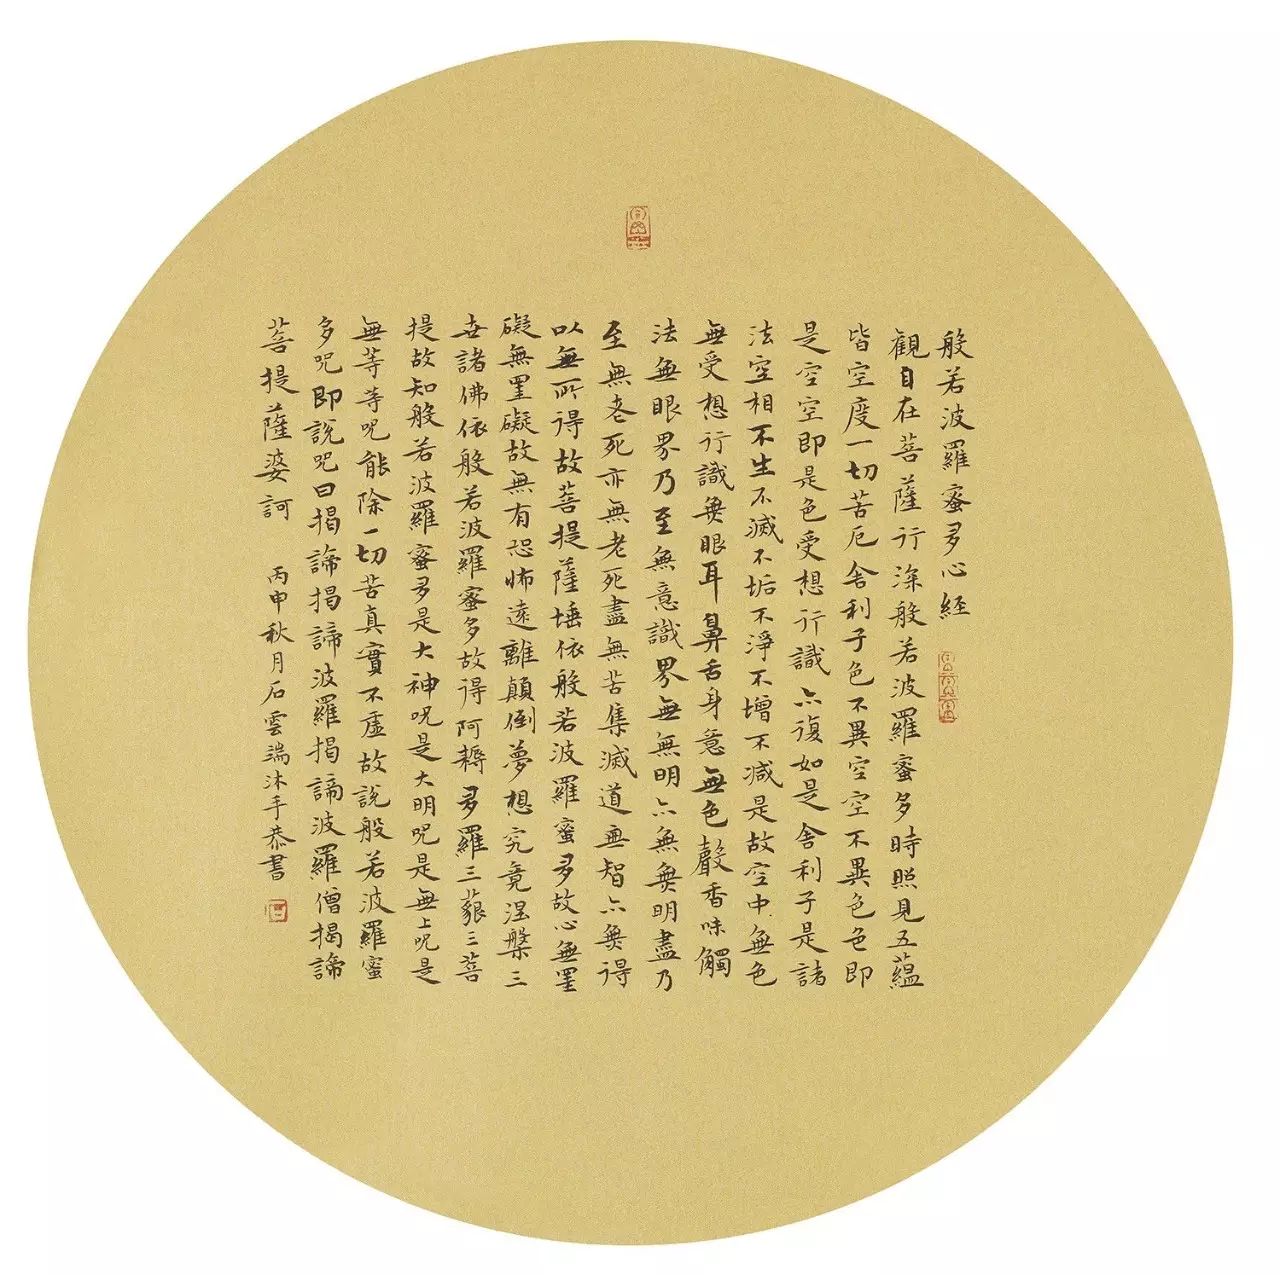 般若波羅蜜多心経
觀自在菩薩行深般若波羅蜜多時照見五蘊
皆空度一切苦厄舍利子色不異空空不異色色即
是空空即是色受想行識亦復如是舍利子是諸
法空相不生不滅不垢不淨不增不減是故空中無色
無受想行識無眼耳鼻舌身意無色聲香味觸
法無眼界乃至無意識界無無明亦無無明盡乃
至無老死亦無老死盡無苦集滅道無智亦無得
以無所得故菩提薩埵依般若波羅蜜多故心無罣
礙無罣礙故無有恐怖遠離顛倒夢想究竟涅槃三
世諸佛依般若波羅蜜多故得阿耨多羅三藐三菩
提故知般若波羅蜜多是大神咒是大明咒是無上咒是
無等等咒能除一切苦真實不虛故說般若波羅蜜
多咒即說咒曰揭諦揭諦波羅揭諦波羅僧揭諦
菩提薩婆訶 丙申秋月石雲端沐手恭書